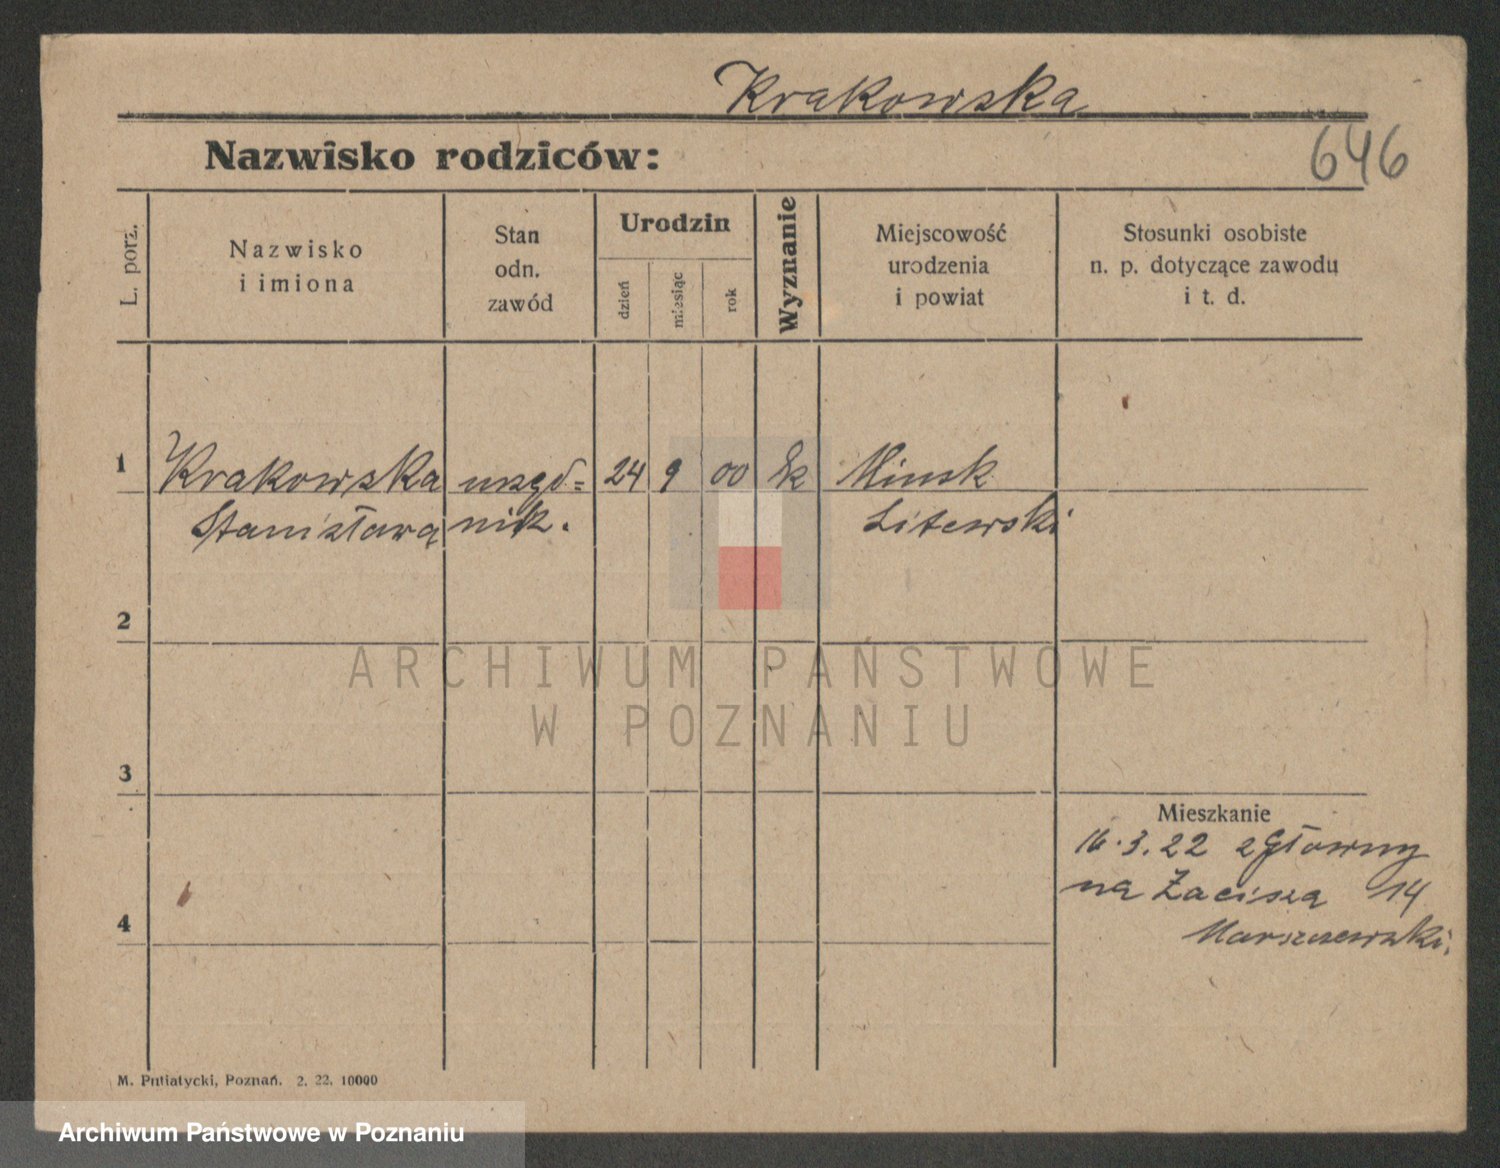 Krakowska
Nazwisko rodziców:
646
L. porz.
Nazwisko
i imiona
Stan
odn.
zawód
Urodzin
dzień
miesiąc
rok
Wyznanie
Miejscowość
urodzenia
i powiat
Stosunki osobiste
n. p. dotyczące zawodu
i t. d.
1
Krakowska
Stanisława
urzęd=
nik.
24
9
00
Mińsk
Litewski
2
3
4
Mieszkanie
16.3.22 z Główny
na Zacisza 14
M. Putiatycki, Poznań. 2. 22. 10000
ARCHIWUM PAŃSTWOWE
W POZNANIU
Archiwum Państwowe w Poznaniu